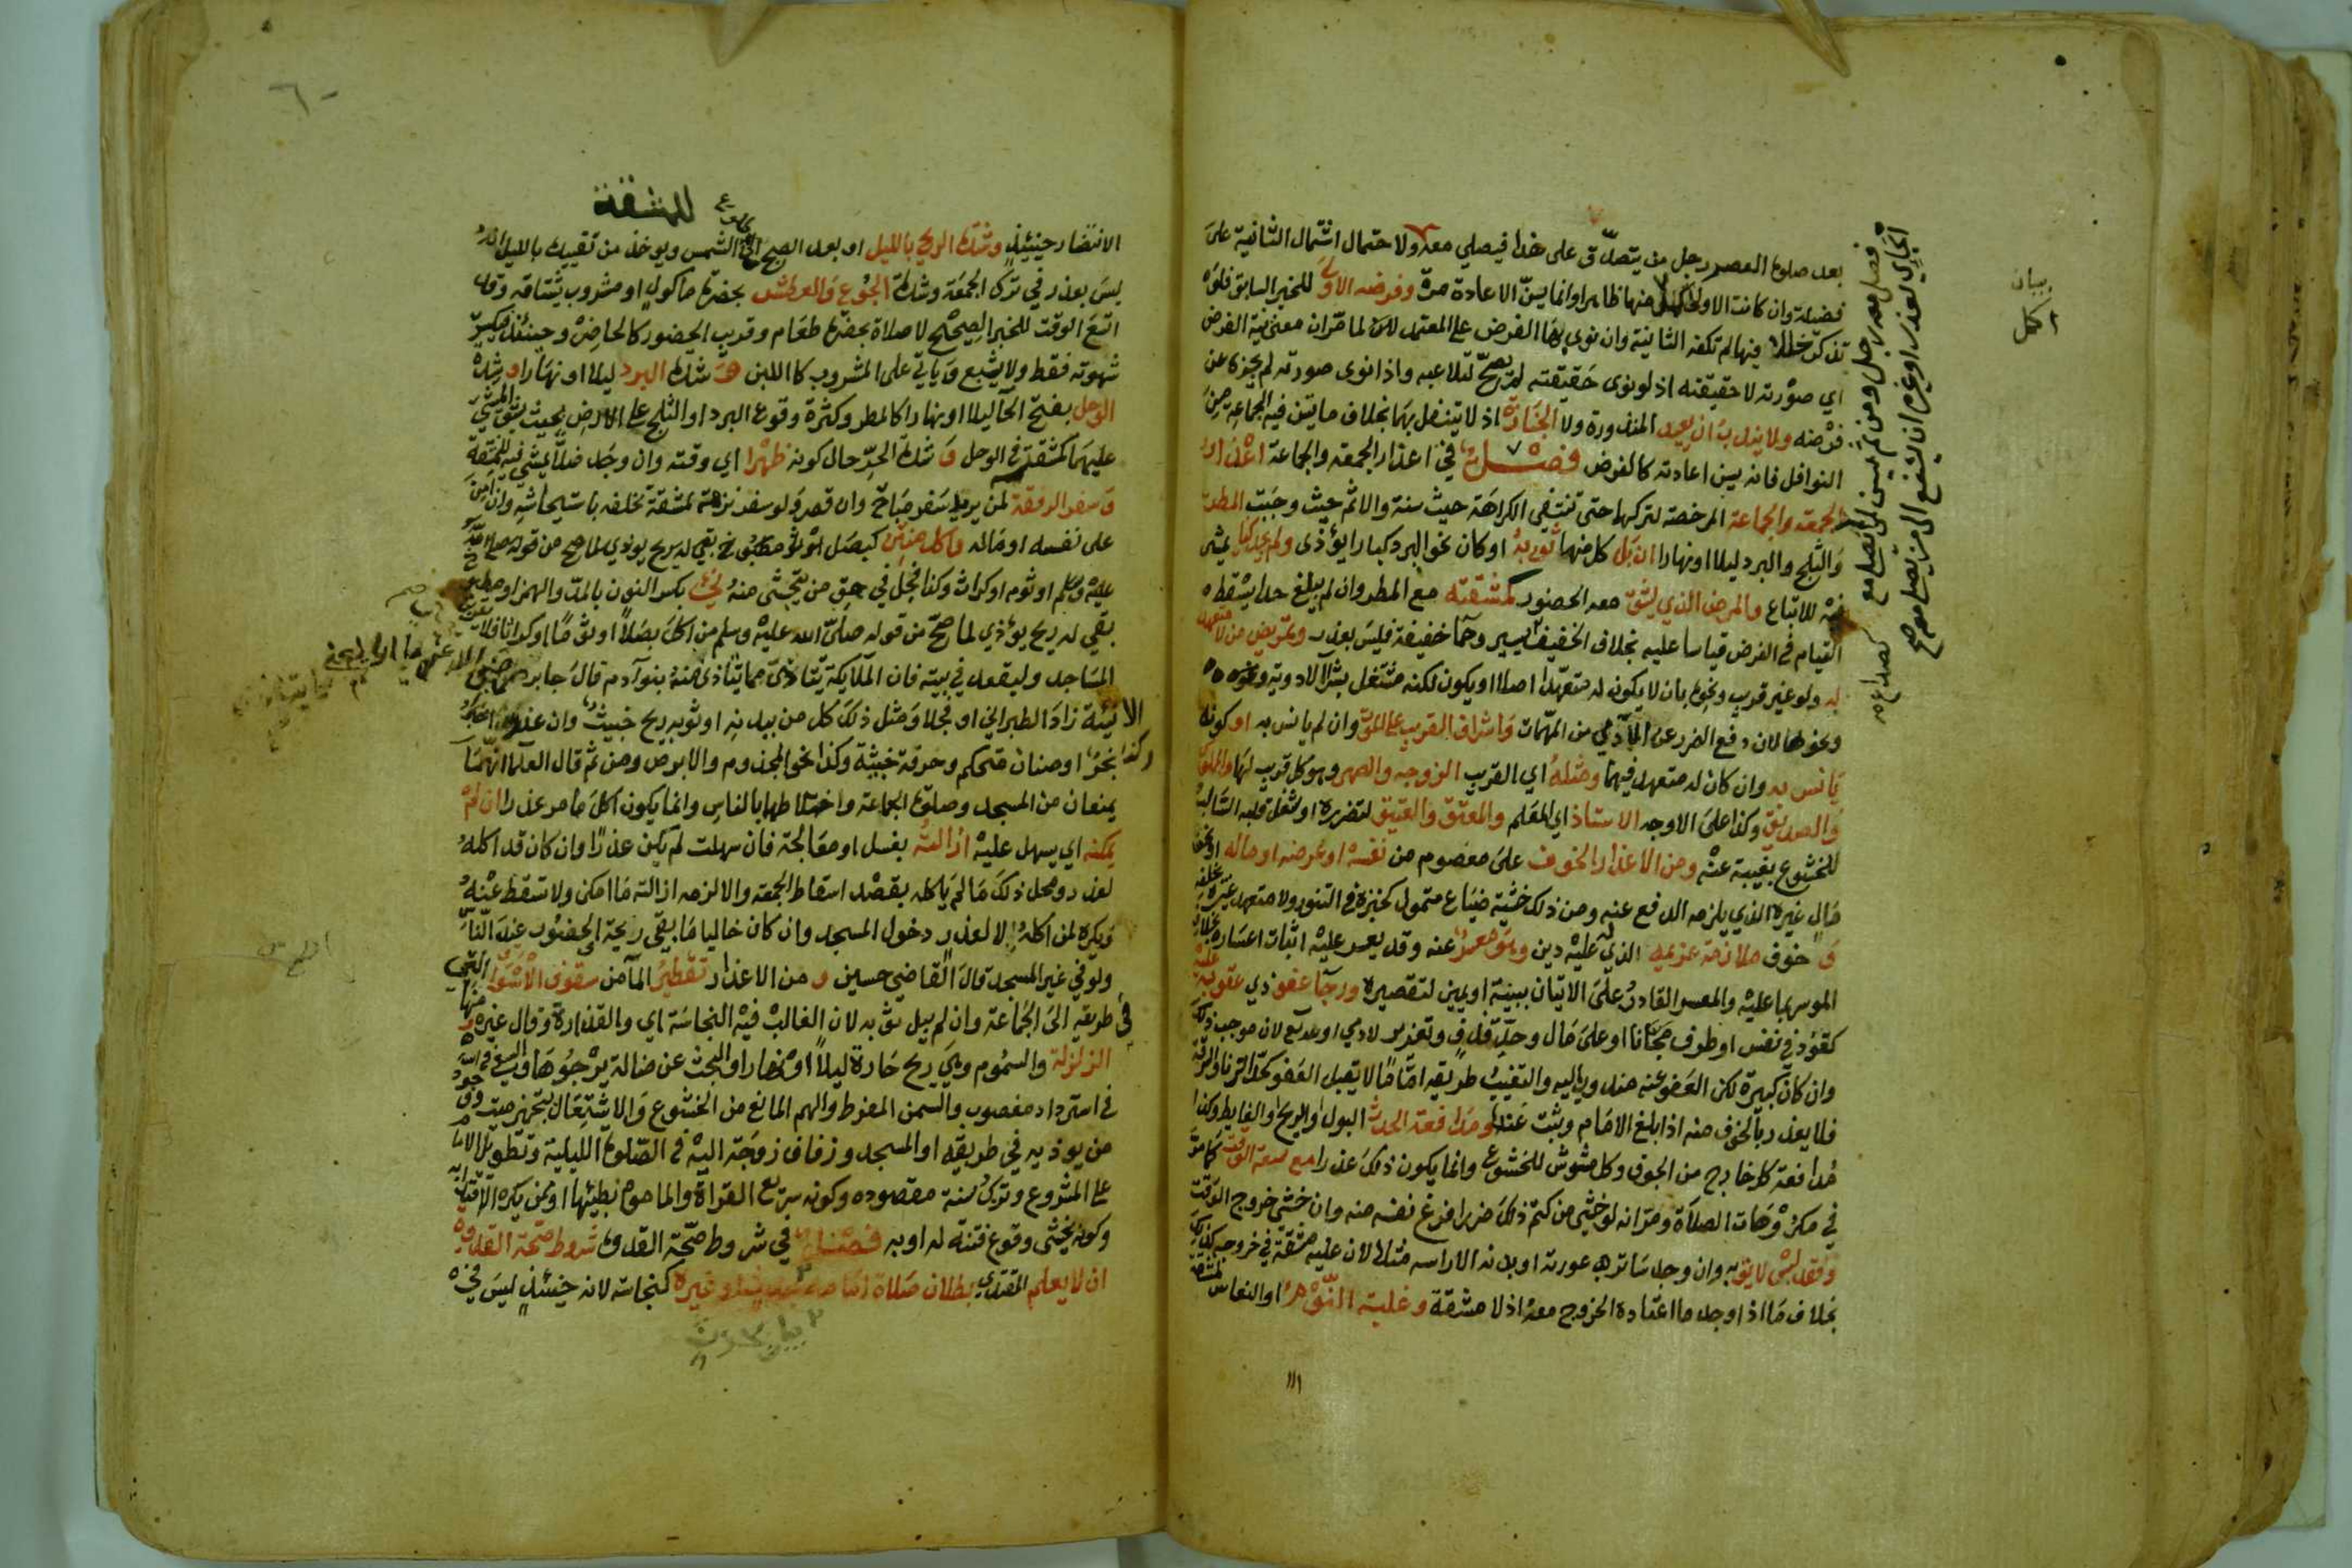 بعد صلوة العصر رجل من يتصدق على هذا فيصلي معه ولاحتمال اشتمال الثانية على
فضيلة وان كانت الاولى اكمل منها ظاهرا وانما يسن الاعادة مرة وفرضه الاولى للخبر السابق فلو
تذكر خللا فيها لم تكفه الثانية وان نوى بها الفرض على المعتمد لما مر ان معنى نية الفرض
اي صورته لا حقيقته اذ لو نوى حقيقته لم يصح لتلاعبه واذا نوى صورته لم يجزه عن
فرضه ولا يندب ان يعيد المنذورة ولا الجنازة اذ لا يتنفل بهما بخلاف ما يسن فيه الجماعة من
النوافل فانه يسن اعادته كالفرض فصل في اعذار الجمعة والجماعة اعذار
الجمعة والجماعة المرخصة لتركهما حتى تنتفي الكراهة حيث سنة والاثم حيث وجبت المطر
والثلج والبرد ليلا او نهارا ان بل كل منها ثوبه او كان نحو البرد كبارا يؤذي ولم يجد كنا يمشي
فيه للاتباع والمرض الذي يشق معه الحضور كمشقته مع المطر وان لم يبلغ حدا يسقط
القيام في الفرض قياسا عليه بخلاف الخفيف اليسير وحما خفيفة فليس بعذر وتمريض من لا متعهد
له ولو غير قريب ونحوه بان لا يكون له متعهدا اصلا او يكون لكنه مشتغل بشرا الادوية ونحوه
ونحوها لان دفع الضرر عن الآدمي من المهمات واشراف القريب على الموت وان لم يانس به او كونه
يانس به وان كان له متعهد فيهما ومثله اي القريب الزوجه والصهر وهو كل قريب لها والمملوك
والصديق وكذا على الاوجه الاستاذ اي المعلم والمعتق والعتيق لتضرره او شغل قلبه السالب
للخشوع بغيبته عنه ومن الاعذار الخوف على معصوم من نفسه او عرضه او ماله او نحو
مال غيره الذي يلزمه الدفع عنه ومن ذلك خشية ضياع متمول كخبزه في التنور ولا متعهد غيره يخلفه
و خوف ملازمة غريمه الذي له عليه دين وهو معسر عنه وقد يعسر عليه اثبات اعساره بخلاف
الموسر بما عليه والمعسر القادر على الاتيان ببينة او يمين لتقصيره ورجآ عفو ذي عقوبة عليه
كقود في نفس او طرف مجانا او على مال وحد قذف وتعزير لادمي او لله تع لان موجب ذلك
وان كان كبيرة لكن العفو عنه مندوب اليه والتغيب طريقه اما ما لا يقبل العفو كحد الزنا والسرقة
فلا يعذر بالخوف منه اذا بلغ الامام وثبت عنده ومدافعة الحدث البول او الريح او الغايط وكذا
مدافعة كل خارج من الجوف وكل مشوش للخشوع وانما يكون ذلك عذرا مع سعة الوقت كما مر
في مكروهات الصلاة ومر انه لو خشي من كتم ذلك ضررا فرغ نفسه منه وان خشي خروج الوقت
وفقد لبس لايق به وان وجد ساتر عورته او بدنه الا راسه مثلا لان عليه مشقة في خروجه كذلك
بخلاف ما اذا وجد ما اعتاده الخروج معه اذ لا مشقة وغلبة النوم او النعاس
فصلي معه رجل ومن ثم يسن لمن لم يصل مع
الجماعة لعذر او غيره ان يشفع الى من يصلي معه صح
للمشقة
الانتضار حينئذ وشدة الريح بالليل او بعد الصبح الى طلوع الشمس ويوخذ من تقييده بالليل انه
ليس بعذر في ترك الجمعة وشدة الجوع والعطش بحضرة ماكول او مشروب يشتاقه وقد
اتسع الوقت للخبر الصحيح لا صلاة بحضرة طعام وقريب الحضور كالحاضر وحينئذ فيكسر
شهوته فقط ولا يشبع وياتي على المشروب كاللبن و شدة البرد ليلا او نهارا وشدة
الوحل بفتح الحآ ليلا او نهارا كالمطر وكثرة وقوع البرد او الثلج على الارض بحيث يشق المشي
عليهما كمشقته في الوحل و شدة الحر حال كونه ظهرا اي وقته وان وجد ظلا يمشي فيه للمشقة
و سفر الرفقة لمن يريد سفر مباح وان قصر ولو سفر نزهة لمشقة تخلفه باستيحاشه وان امن
على نفسه او ماله واكل منتن كبصل او ثوم مطبوخ بقي له ريح يوذي لما صح من قوله صلى الله
عليه وسلم او ثوم او كراث وكذا فجل في حق من يتجشى منه نيء بكسر النون بالمد والهمز او مطبوخ
بقي له ريح يؤذي لما صح من قوله صلى الله عليه وسلم من اكل بصلا او ثوما او كراثا فلا يقربن
المساجد وليقعد في بيته فان الملايكة يتاذى مما يتاذى منه بنو آدم قال جابر
الا نيئة زاد الطبراني او فجلا ومثل ذلك كل من ببدنه او ثوبه ريح خبيث وان عذر
وكذا بخر او صنان مستحكم وحرفة خبيثة وكذا نحو المجذوم والابرص ومن ثم قال العلما انهما
يمنعان من المسجد وصلوة الجماعة واختلاطهما بالناس وانما يكون اكل ما مر عذرا ان لم
يمكنه اي يسهل عليه ازالته بغسل او معالجة فان سهلت لم يكن عذرا وان كان قد اكله
لعذر ومحل ذلك ما لم ياكله بقصد اسقاط الجمعة والا لزمه ازالته ما امكن ولا تسقط عنه
ويكره لمن اكله لا لعذر دخول المسجد وان كان خاليا ما بقي ريحه الحضور عند الناس
ولو في غير المسجد قال القاضي حسين و من الاعذار تقطير المآ من سقوف الاسواق التي
في طريقه الى الجماعة وان لم يبل ثوبه لان الغالب فيه النجاسة اي والقذارة وقال غيره و منها
الزلزلة والسموم وهي ريح حارة ليلا او نهارا والبحث عن ضالة يرجوها والسعي
في استرداد مغصوب والسمن المفرط والهم المانع من الخشوع والاشتغال بتجهيز ميت ووجود
من يوذيه في طريقه او المسجد وزفاف زوجته اليه في الصلوة الليلية وتطويل الامام
على المشروع وترك سنة مقصوده وكونه سريع القراة والماموم بطيئها او ممن يكره الاقتدا به
وكونه يخشى وقوع فتنة له او به فصل في شروط صحة القدوة شروط صحة القدوة
ان لا يعلم المقتدي بطلان صلاة امامه بحدث او غيره كنجاسة لانه حينئذ ليس في